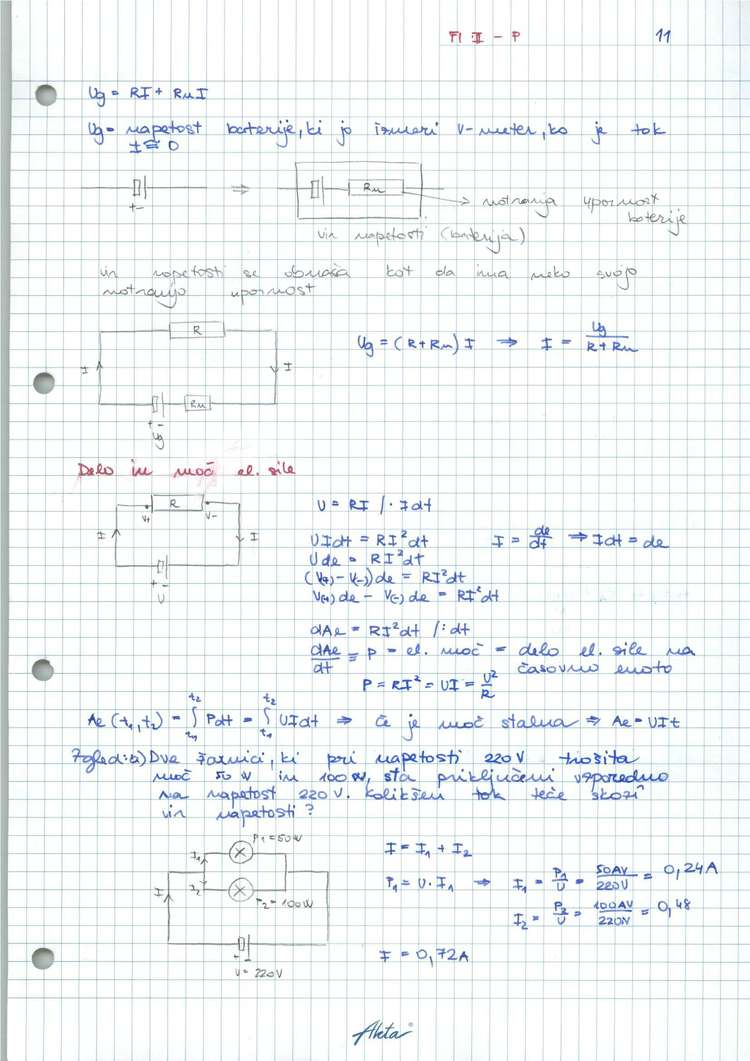 FI II - P
11
Ug = RI + RnI
Ug = napetost baterije, ki jo izmeri V-meter, ko je tok
I ≅ 0
+ -
⇒
Rn
→ notranja upornost
baterije
vir napetosti (baterija)
vir napetosti se obnaša kot da ima neko svojo
notranjo upornost
R
I
I
Rn
+ -
Ug
Ug = (R + Rn) I ⇒ I = Ug / (R + Rn)
Delo in moč el. sile
R
V+ V-
I
I
+ -
U
U = RI / · Idt
UIdt = RI²dt
I = de/dt ⇒ Idt = de
Ude = RI²dt
(V(+) - V(-))de = RI²dt
V(+)de - V(-)de = RI²dt
dAe = RI²dt / :dt
dAe/dt = P = el. moč = delo el. sile na
časovno enoto
P = RI² = UI = U²/R
Ae(t₁,t₂) = ∫ₜ₁ᵗ² Pdt = ∫ₜ₁ᵗ² UIdt ⇒ če je moč stalna ⇒ Ae = UIt
Zgled: a) Dve žarnici, ki pri napetosti 220V trošita
moč 50 W in 100 W, sta priključeni vzporedno
na napetost 220 V. Kolikšen tok teče skozi
vir napetosti?
P₁ = 50W
I₁
I
I₂
P₂ = 100W
+ -
U = 220V
I = I₁ + I₂
P₁ = U · I₁ ⇒ I₁ = P₁/U = 50AV/220V = 0,24A
I₂ = P₂/U = 100AV/220V = 0,48
I = 0,72A
Akta